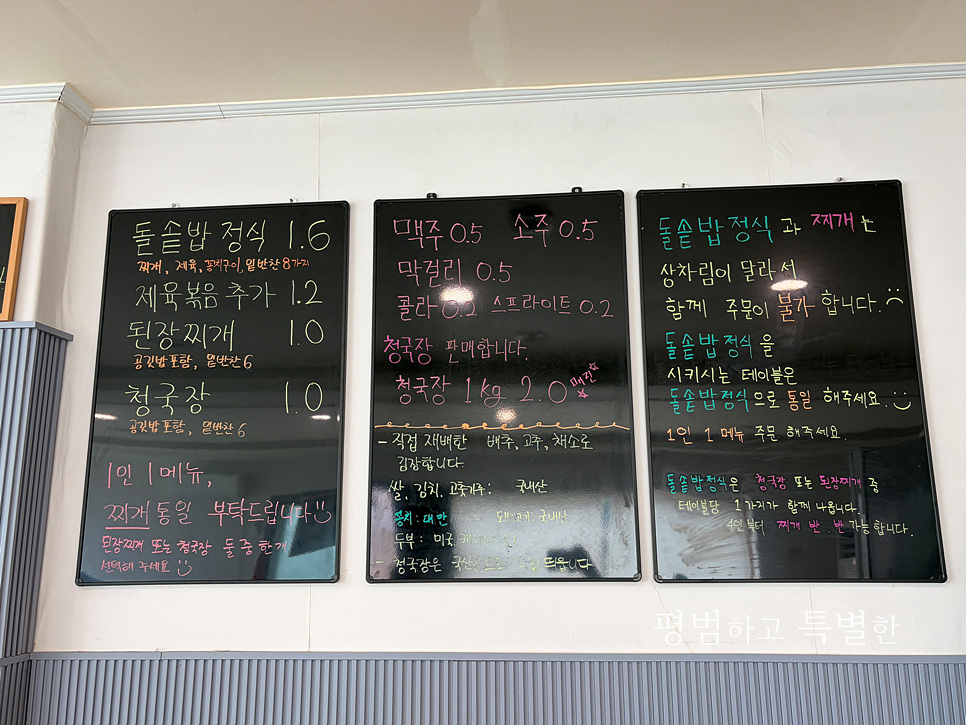 돌솥밥 정식 1.6
찌개, 제육, 꽁치구이, 밑반찬 8가지
제육볶음 추가 1.2
된장찌개 1.0
공깃밥 포함, 밑반찬 6
청국장 1.0
공깃밥 포함, 밑반찬 6
1인 1메뉴,
찌개 통일 부탁드립니다
된장찌개 또는 청국장 둘 중 한 개
선택해 주세요
맥주 0.5 소주 0.5
막걸리 0.5
콜라 0.2 스프라이트 0.2
청국장 판매합니다.
청국장 1kg 2.0 매진
- 직접 재배한 배추, 고추, 채소로
김장합니다.
쌀, 김치, 고춧가루: 국내산
꽁치: 대만 돼지고기: 국내산
두부: 미국,
- 청국장은 띄웁니다
돌솥밥 정식과 찌개는
상차림이 달라서
함께 주문이 불가 합니다.
돌솥밥 정식을
시키시는 테이블은
돌솥밥정식으로 통일 해주세요.
1인 1메뉴 주문 해주세요.
돌솥밥정식은 청국장 또는 된장찌개 중
테이블당 1가지가 함께 나옵니다.
4인부터 찌개 반. 반 가능합니다.
평범하고 특별한